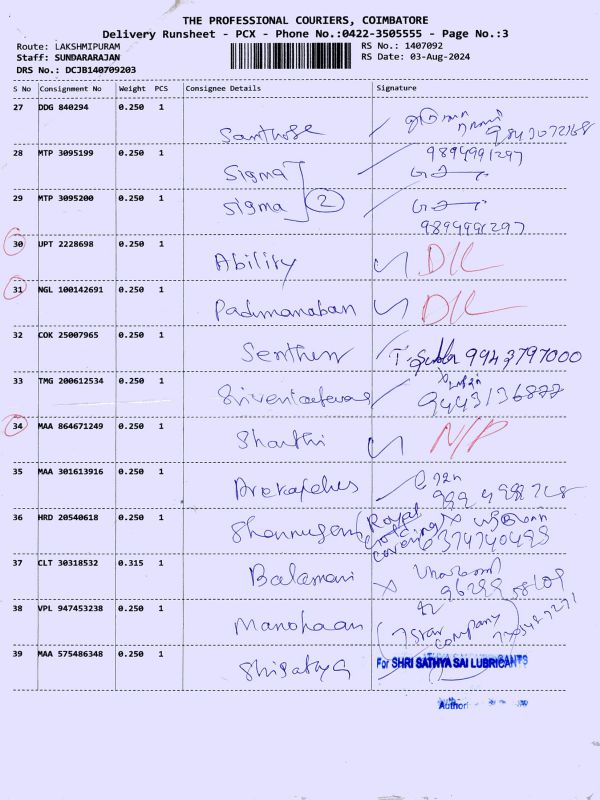 THE PROFESSIONAL COURIERS, COIMBATORE
Delivery Runsheet - PCX - Phone No.:0422-3505555 - Page No.:3
Route: LAKSHMIPURAM RS No.: 1407092
Staff: SUNDARARAJAN RS Date: 03-Aug-2024
DRS No.: DCJB140709203
S No Consignment No Weight PCS Consignee Details Signature
27 DDG 840294 0.250 1
Santhose
28 MTP 3095199 0.250 1 9894991297
Sigma
29 MTP 3095200 0.250 1
Sigma 2
9894991297
30 UPT 2228698 0.250 1
Ability D/L
31 NGL 100142691 0.250 1
Padmanaban D/L
32 COK 25007965 0.250 1
Senthen 9943797000
33 TMG 200612534 0.250 1
9443136877
34 MAA 864671249 0.250 1 N/P
Sharthi
35 MAA 301613916 0.250 1
36 HRD 20540618 0.250 1
Shanmugam (Royal
covering 6374740493
37 CLT 30318532 0.315 1
Balamani
38 VPL 947453238 0.250 1
Manohaan 7 Star company
39 MAA 575486348 0.250 1
Shisathya For SHRI SATHYA SAI LUBRICANTS